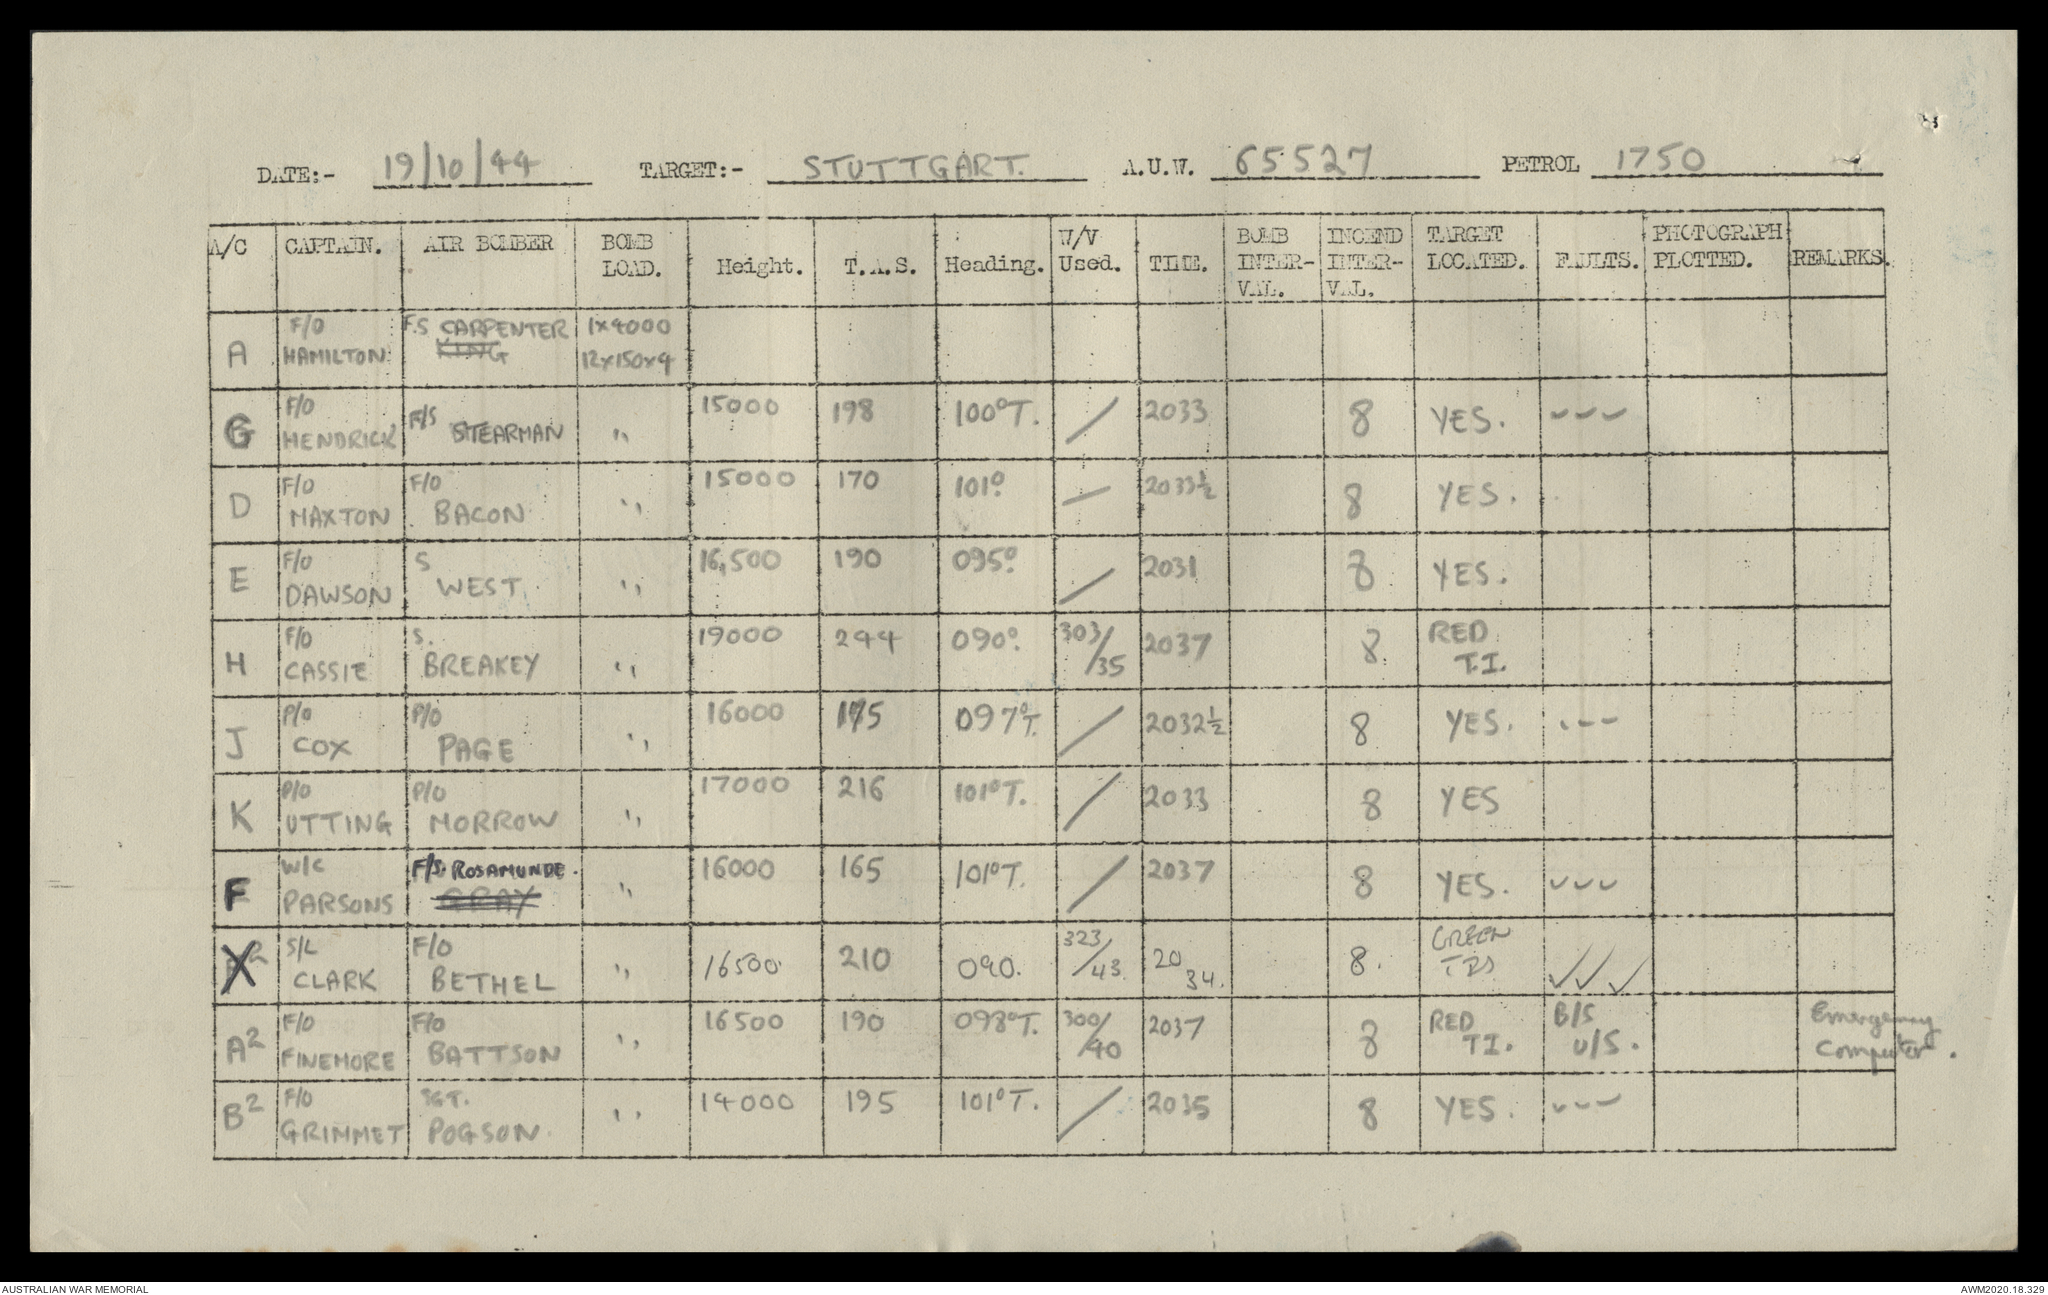 DATE:- 19/10/44 TARGET:- STUTTGART. A.U.W. 65527 PETROL 1750
A/C CAPTAIN. AIR BOMBER BOMB LOAD. Height. T.A.S. Heading. W/V Used. TIME. BOMB INTER-VAL. INCEND INTER-VAL. TARGET LOCATED. FAULTS. PHOTOGRAPH PLOTTED. REMARKS.
A F/O HAMILTON F.S CARPENTER KING 1x4000 12x150x4
G F/O HENDRICK F/S STEARMAN " 15000 198 100°T. / 2033 8 YES. ---
D F/O MAXTON F/O BACON " 15000 170 101° / 2033½ 8 YES.
E F/O DAWSON S WEST " 16,500 190 095° / 2031 8 YES.
H F/O CASSIE S. BREAKEY " 19000 244 090° 303/35 2037 8 RED T.I.
J P/O COX P/O PAGE " 16000 175 097°T. / 2032½ 8 YES. ---
K P/O UTTING P/O MORROW " 17000 216 101°T. / 2033 8 YES
F W/C PARSONS F/S. ROSAMUNDE. GRAY " 16000 165 101°T. / 2037 8 YES. ✓✓✓
X² S/L CLARK F/O BETHEL " 16500 210 090. 323/43 20 34. 8. GREEN ✓✓✓
A² F/O FINEMORE F/O BATTSON " 16500 190 098°T. 300/40 2037 8 RED TI. B/S U/S. Emergency Computer.
B² F/O GRIMMET SGT. POGSON. " 14000 195 101°T. / 2035 8 YES. ---
AUSTRALIAN WAR MEMORIAL AWM2020.18.329